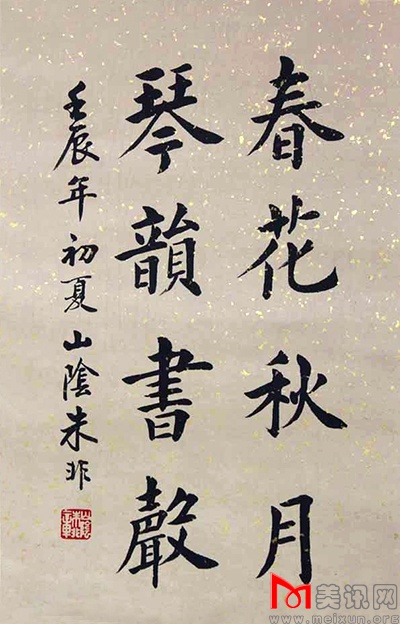 春花秋月
琴韻書聲
壬辰年初夏山陰朱非
美讯网
www.meixun.org